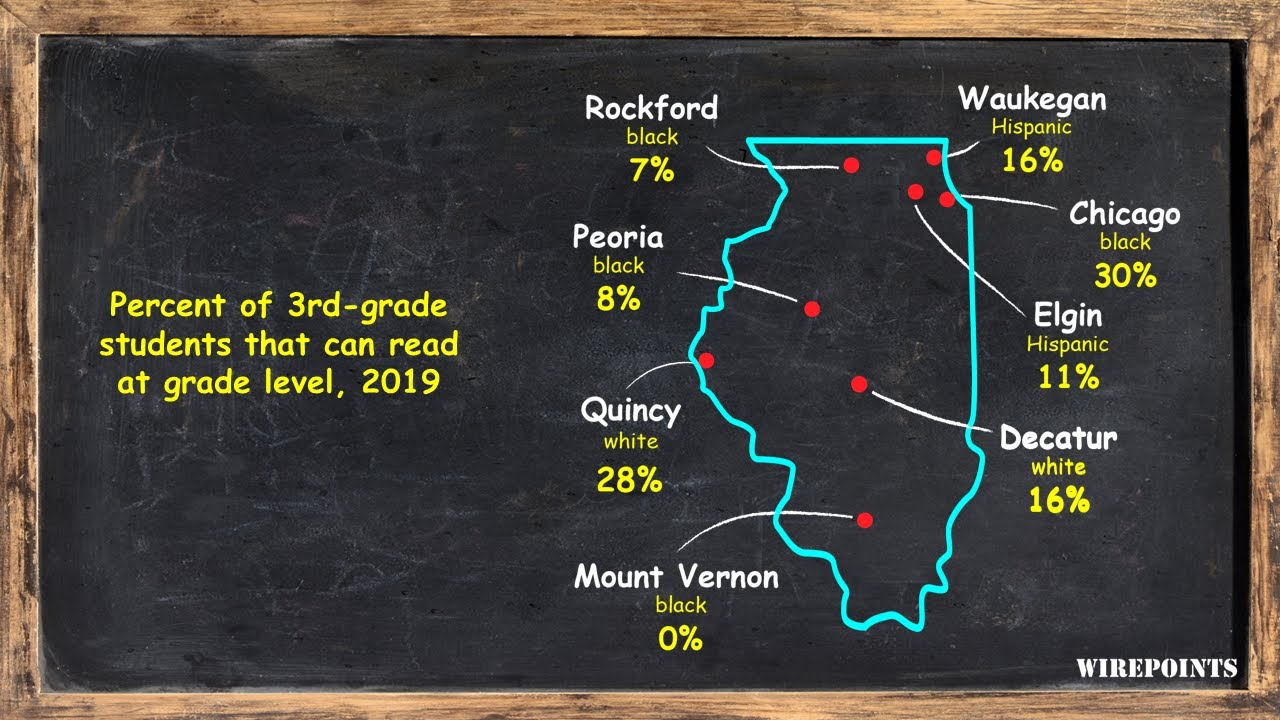 Percent of 3rd-grade
students that can read
at grade level, 2019
Rockford
black
7%
Waukegan
Hispanic
16%
Chicago
black
30%
Peoria
black
8%
Elgin
Hispanic
11%
Quincy
white
28%
Decatur
white
16%
Mount Vernon
black
0%
WIREPOINTS